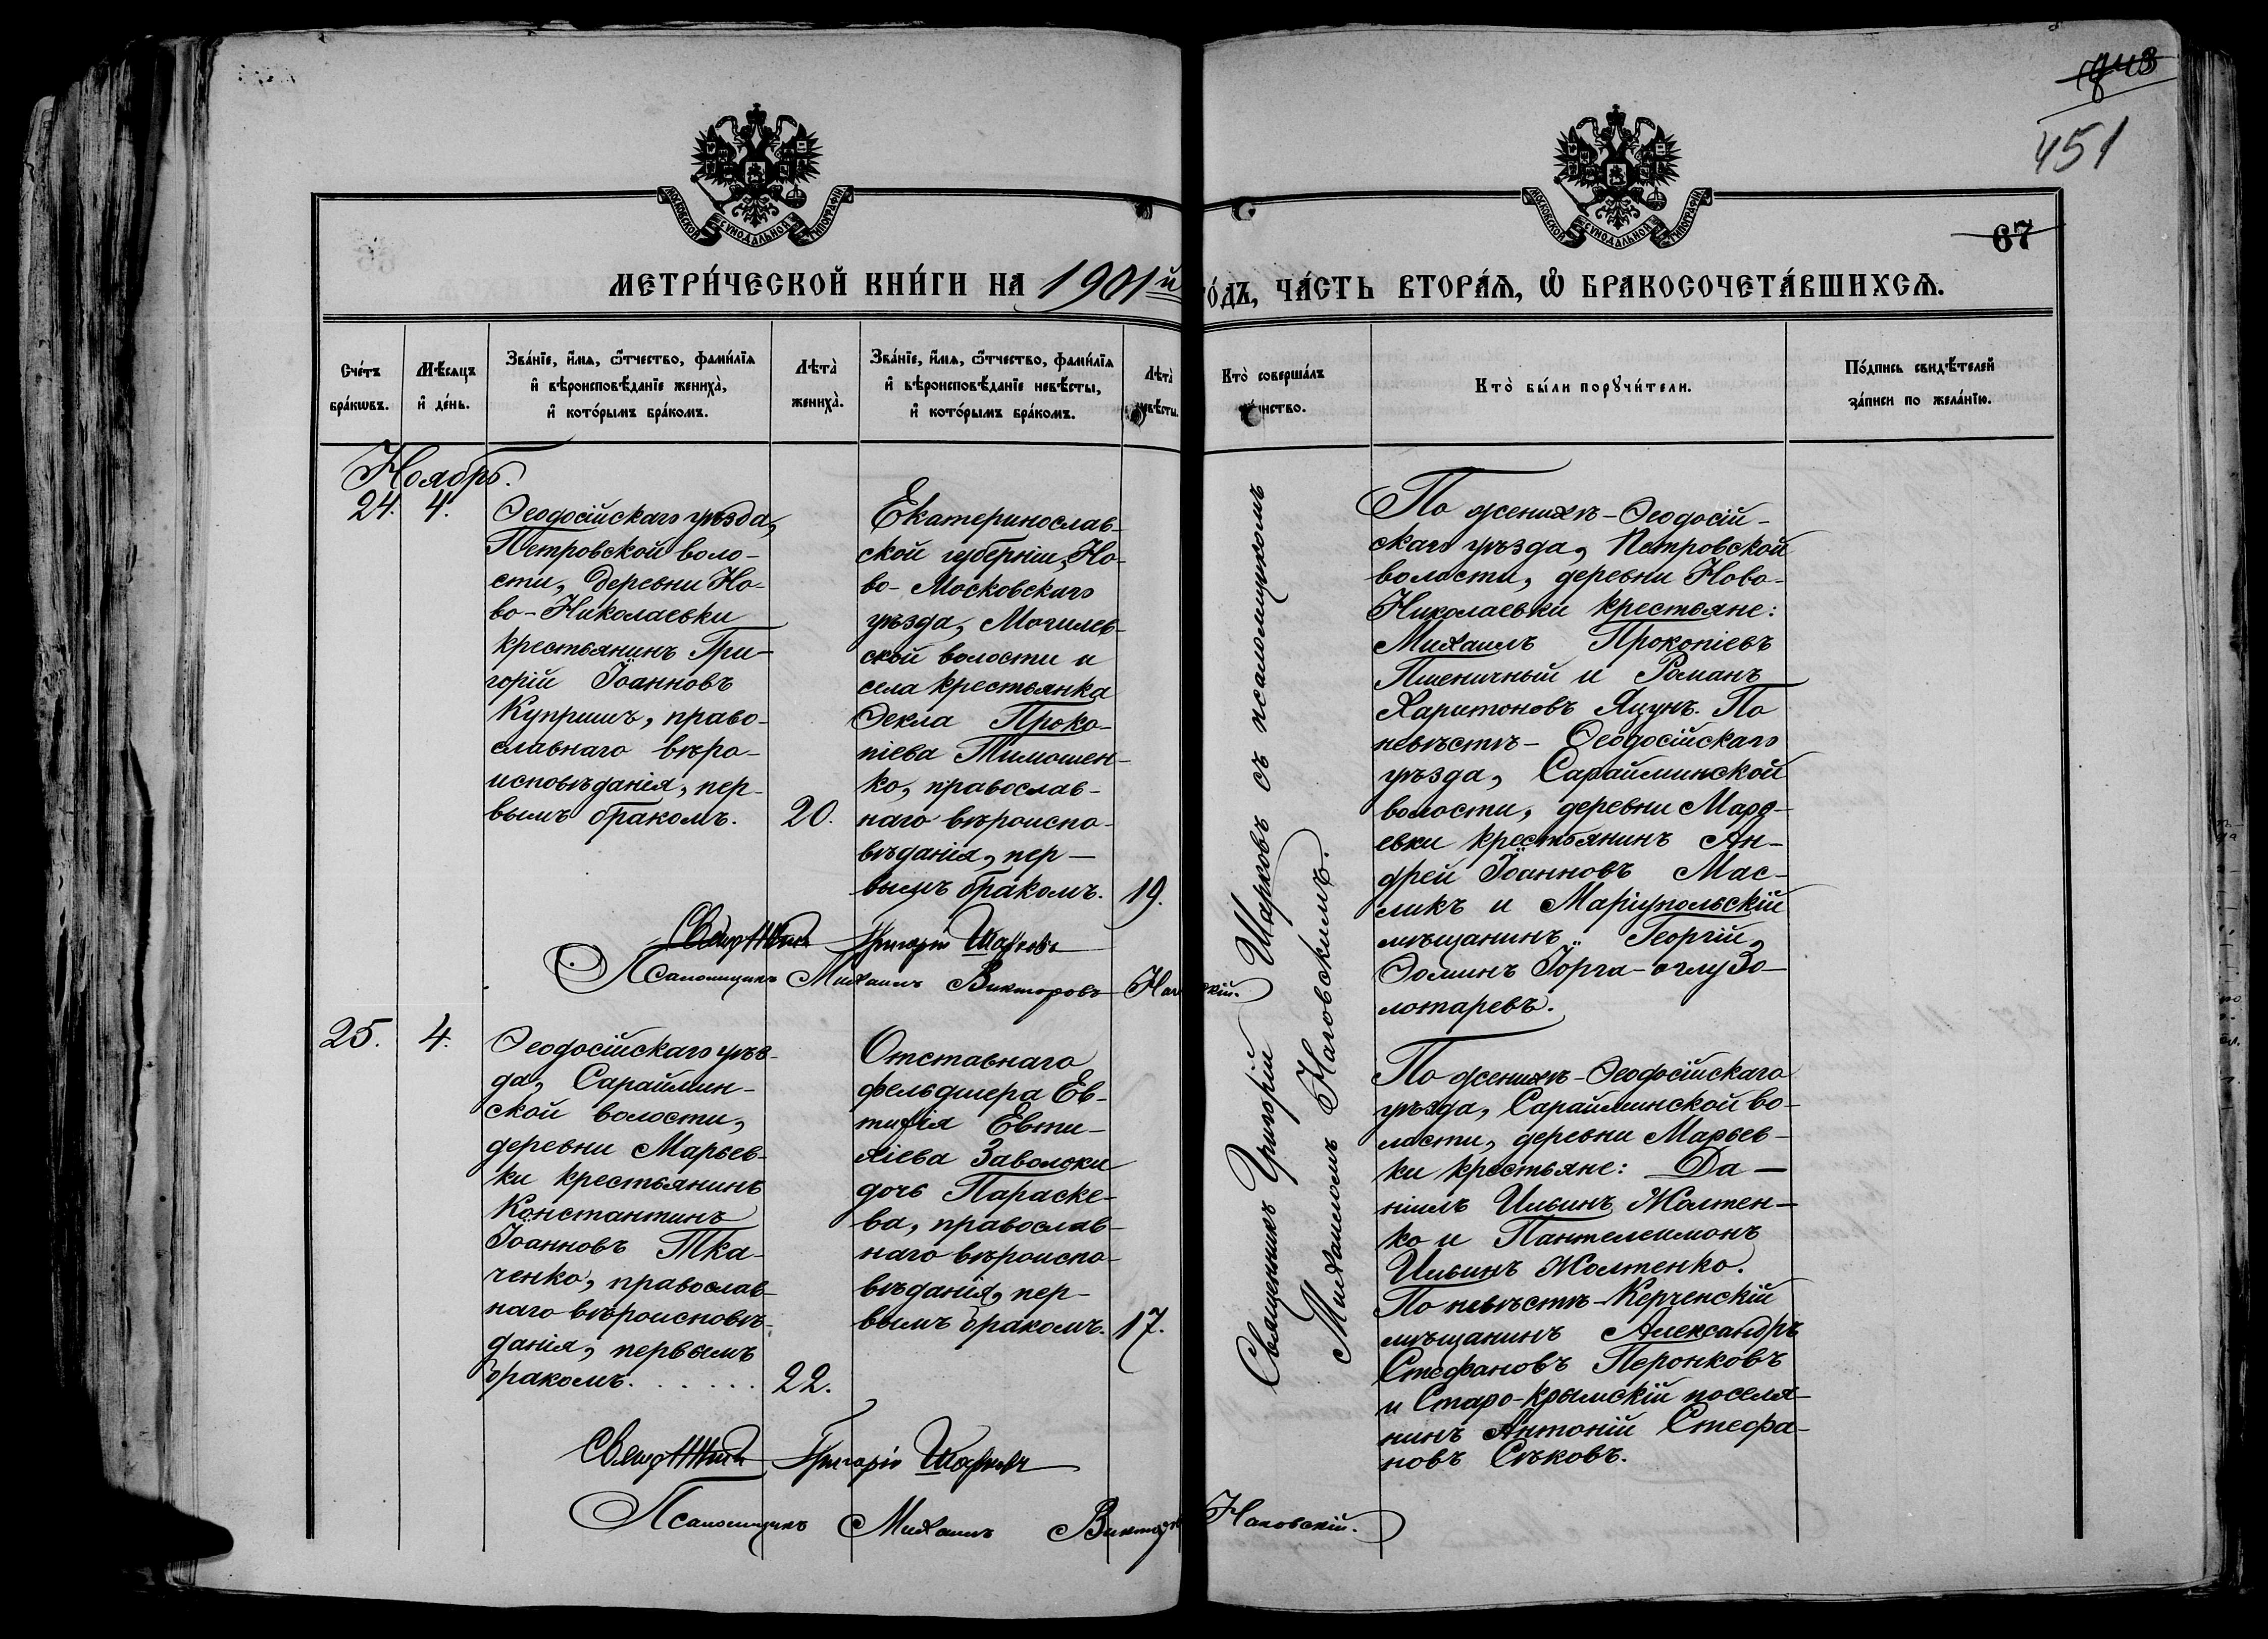 843
451
67
МОСКОВСКОЙ СѴНОДАЛЬНОЙ ТИПОГРАФІИ
МОСКОВСКОЙ СѴНОДАЛЬНОЙ ТИПОГРАФІИ
МЕТРИ́ЧЕСКОЙ КНИ́ГИ НА 1901й
ГО́ДЪ, ЧА́СТЬ ВТОРА́Я, Ѡ БРАКОСОЧЕТА́ВШИХСЯ.
Сче́тъ
бра́кѡвъ.
Мѣ́сяцъ
и де́нь.
Зва́нїе, и́мя, ѻ҆́тчество, фами́лїя
и҆ вѣроисповѣ́данїе жениха̀,
и҆ кото́рымъ бра́комъ.
Лѣта̀
жениха̀.
Зва́нїе, и́мя, ѻ҆́тчество, фами́лїя
и҆ вѣроисповѣ́данїе невѣ́сты,
и҆ кото́рымъ бра́комъ.
Лѣта̀
невѣ́сты.
Кто̀ соверша́лъ
та́инство.
Кто̀ бы́ли порꙋчи́тели.
По́дпись свидѣ́телей
за́писи по жела́нїю.
Ноябрь.
24.
4.
Ѳеодосійскаго уѣзда,
Петровской воло-
сти, деревни Но-
во-Николаевки
крестьянинъ Гри-
горій Іоанновъ
Купришъ, право-
славнаго вѣро-
исповѣданія, пер-
вымъ бракомъ.
20.
Екатеринослав-
ской губерніи, Но-
во-Московскаго
уѣзда, Могилев-
ской волости и
села крестьянка
Ѳекла Проко-
піева Тимошен-
ко, православ-
наго вѣроиспо-
вѣданія, пер-
вымъ бракомъ.
19.
Священникъ Григорій Шарковъ съ псаломщикомъ
Михаиломъ Наговскимъ.
По женихѣ-Ѳеодосій-
скаго уѣзда, Петровской
волости, деревни Ново-
Николаевки крестьяне:
Михаилъ Прокопіевъ
Пшеничный и Романъ
Харитоновъ Яцунъ. По
невѣстѣ-Ѳеодосійскаго
уѣзда, Сарайминской
волости, деревни Марь-
евки крестьянинъ Ан-
дрей Іоанновъ Мас-
ликъ и Маріупольскій
мѣщанинъ Георгій
Ѳоминъ Іорга-оглу Зо-
лотаревъ.
Священникъ Григорій Шарковъ
Псаломщикъ Михаилъ Викторовъ Наговскій.
25.
4.
Ѳеодосійскаго уѣз-
да, Сараймин-
ской волости,
деревни Марьев-
ки крестьянинъ
Константинъ
Іоанновъ Тка-
ченко, православ-
наго вѣроисповѣ-
данія, первымъ
бракомъ.
22.
Отставнаго
фельдшера Ев-
тихія Евти-
хіева Заволоки
дочь Параске-
ва, православ-
наго вѣроиспо-
вѣданія, пер-
вымъ бракомъ.
17.
По женихѣ-Ѳеодосійскаго
уѣзда, Сарайминской во-
лости, деревни Марьев-
ки крестьяне: Да-
ніилъ Ильинъ Жолтен-
ко и Пантелеимонъ
Ильинъ Жолтенко.
По невѣстѣ-Керченскій
мѣщанинъ Александръ
Стефановъ Перонковъ
и Старо-Крымскій поселя-
нинъ Антоній Стефа-
новъ Сѣковъ.
Священникъ Григорій Шарковъ
Псаломщикъ Михаилъ Викторовъ Наговскій.